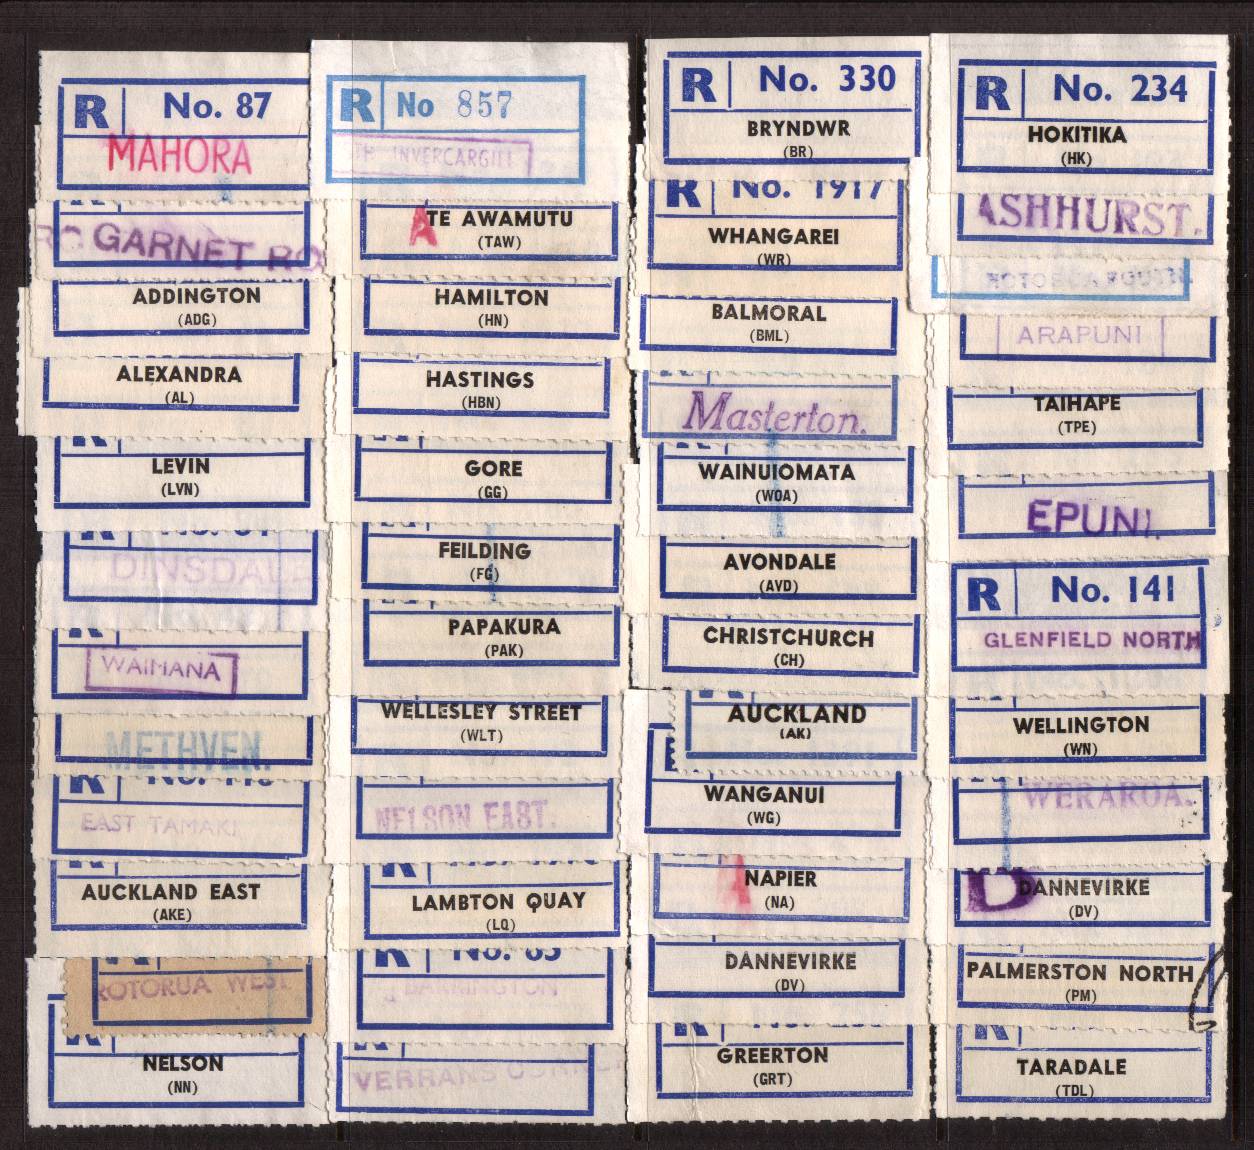 R No. 87
MAHORA
GARNET RO
ADDINGTON
(ADG)
ALEXANDRA
(AL)
R
LEVIN
(LVN)
DINSDALE
R
WAIMANA
METHVEN.
R No.
EAST TAMAKI
AUCKLAND EAST
(AKE)
ROTORUA WEST
NELSON
(NN)
R No 857
INVERCARGILL
A
TE AWAMUTU
(TAW)
HAMILTON
(HN)
HASTINGS
(HBN)
GORE
(GG)
FEILDING
(FG)
PAPAKURA
(PAK)
WELLESLEY STREET
(WLT)
NELSON EAST.
R
LAMBTON QUAY
(LQ)
R No. 83
BARRINGTON
VERRANS CORNER
R No. 330
BRYNDWR
(BR)
R No. 1917
WHANGAREI
(WR)
BALMORAL
(BML)
Masterton.
WAINUIOMATA
(WOA)
AVONDALE
(AVD)
CHRISTCHURCH
(CH)
AUCKLAND
(AK)
WANGANUI
(WG)
A
NAPIER
(NA)
DANNEVIRKE
(DV)
R
GREERTON
(GRT)
R No. 234
HOKITIKA
(HK)
ASHHURST.
ARAPUNI
TAIHAPE
(TPE)
EPUNI.
R No. 141
GLENFIELD NORTH
WELLINGTON
(WN)
WERAROA.
D
DANNEVIRKE
(DV)
PALMERSTON NORTH
(PM)
R
TARADALE
(TDL)